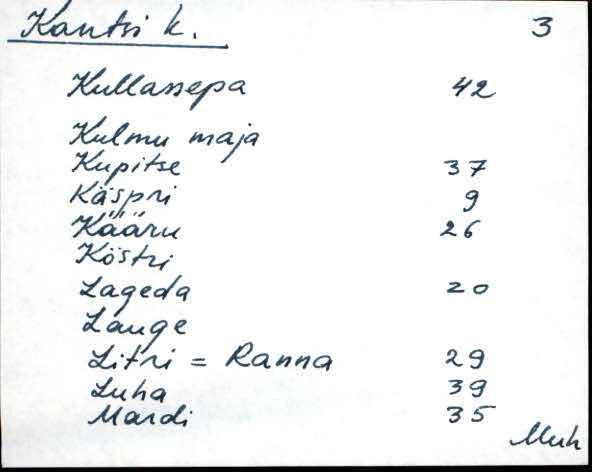 Kantsi k. 3
Kullassepa 42
Kulmu maja
Kupitse 37
Käspri 9
Kääru 26
Köstri
Lageda 20
Lauge
Litri = Ranna 29
Luha 39
Mardi 35
Muh